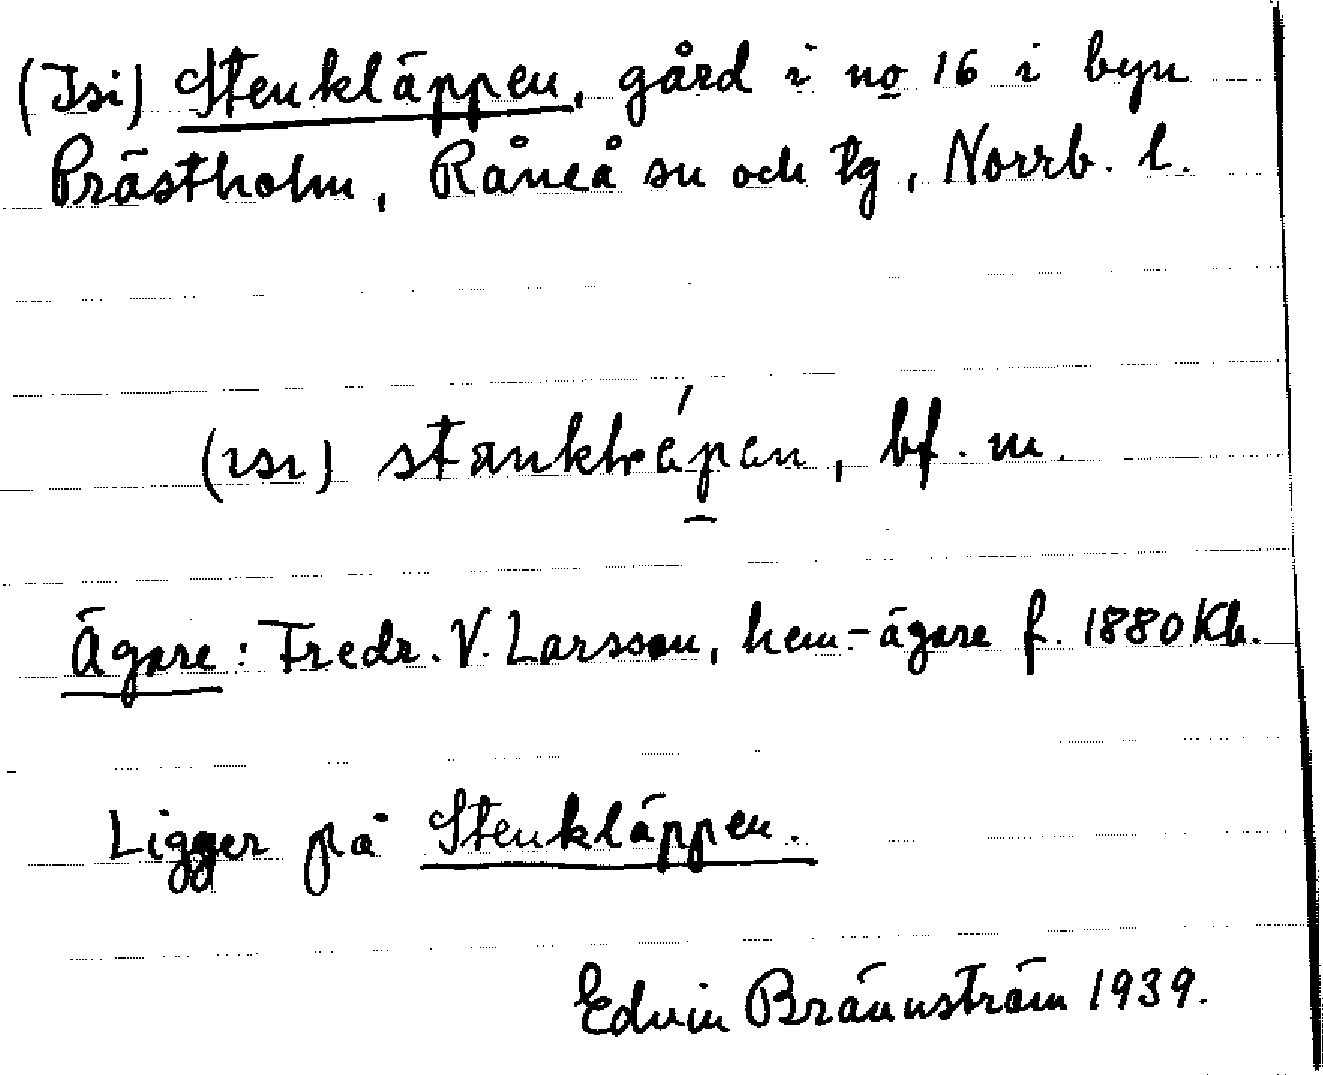 (Isi) Stenkläppen, gård i no 16 i byn
Prästholm, Råneå sn och tg, Norrb. l.
(ɪsɪ) , bf. m.
Ägare: Fredr. V. Larsson, hem.-ägare f. 1880 Kb.
Ligger på Stenkläppen.
Edvin Brännström 1939.